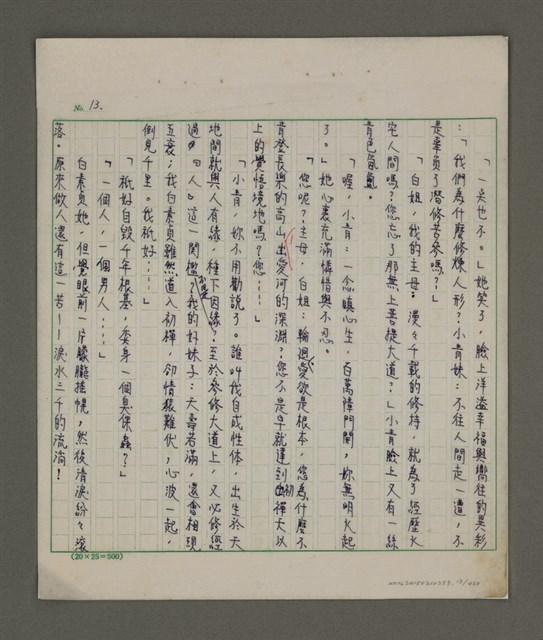 No. 13.
「一點也不。」她笑了，臉上洋溢幸福與嚮往的異彩
：「我們為什麼修煉人形？小青妹：不往人間走一遭，不
是辜負了潛修苦參嗎？」
「白姐，我的主母。漫々千載的修持，就為了經歷火
宅人間嗎？您忘了那無上菩提大道？」小青臉上又有一絲
青色氤氳。
「喔，小青：一念嗔心生，百萬障門開，妳無明火起
了。」她心裏充滿憐惜與不忍。
「您呢？主母，白姐：輪迴，愛欲是根本，您為什麼不
肯登長樂的高山，出愛河的深淵？您不是早就達到初禪天以
上的覺悟境地嗎？您……」
「小青，妳不用勸說了。誰叫我自成性體，出生於天
地間就與人有緣，種下因緣？至於參修大道上，又必修經
過『人』這一關檻？我的好妹子：天壽若滿，還會相現
五衰；我白素貞雖然道入初禪，卻情猿難伏，心波一起，
倒見千里。我祇好……」
「祇好自毀千年根基，委身一個臭倮蟲？」
「一個人，一個男人……」
白素貞她，但覺眼前一片朦朧搖幌，然後清淚紛々滾
落。原來做人還有這一苦——淚水三千的流淌！
(20×25=500)